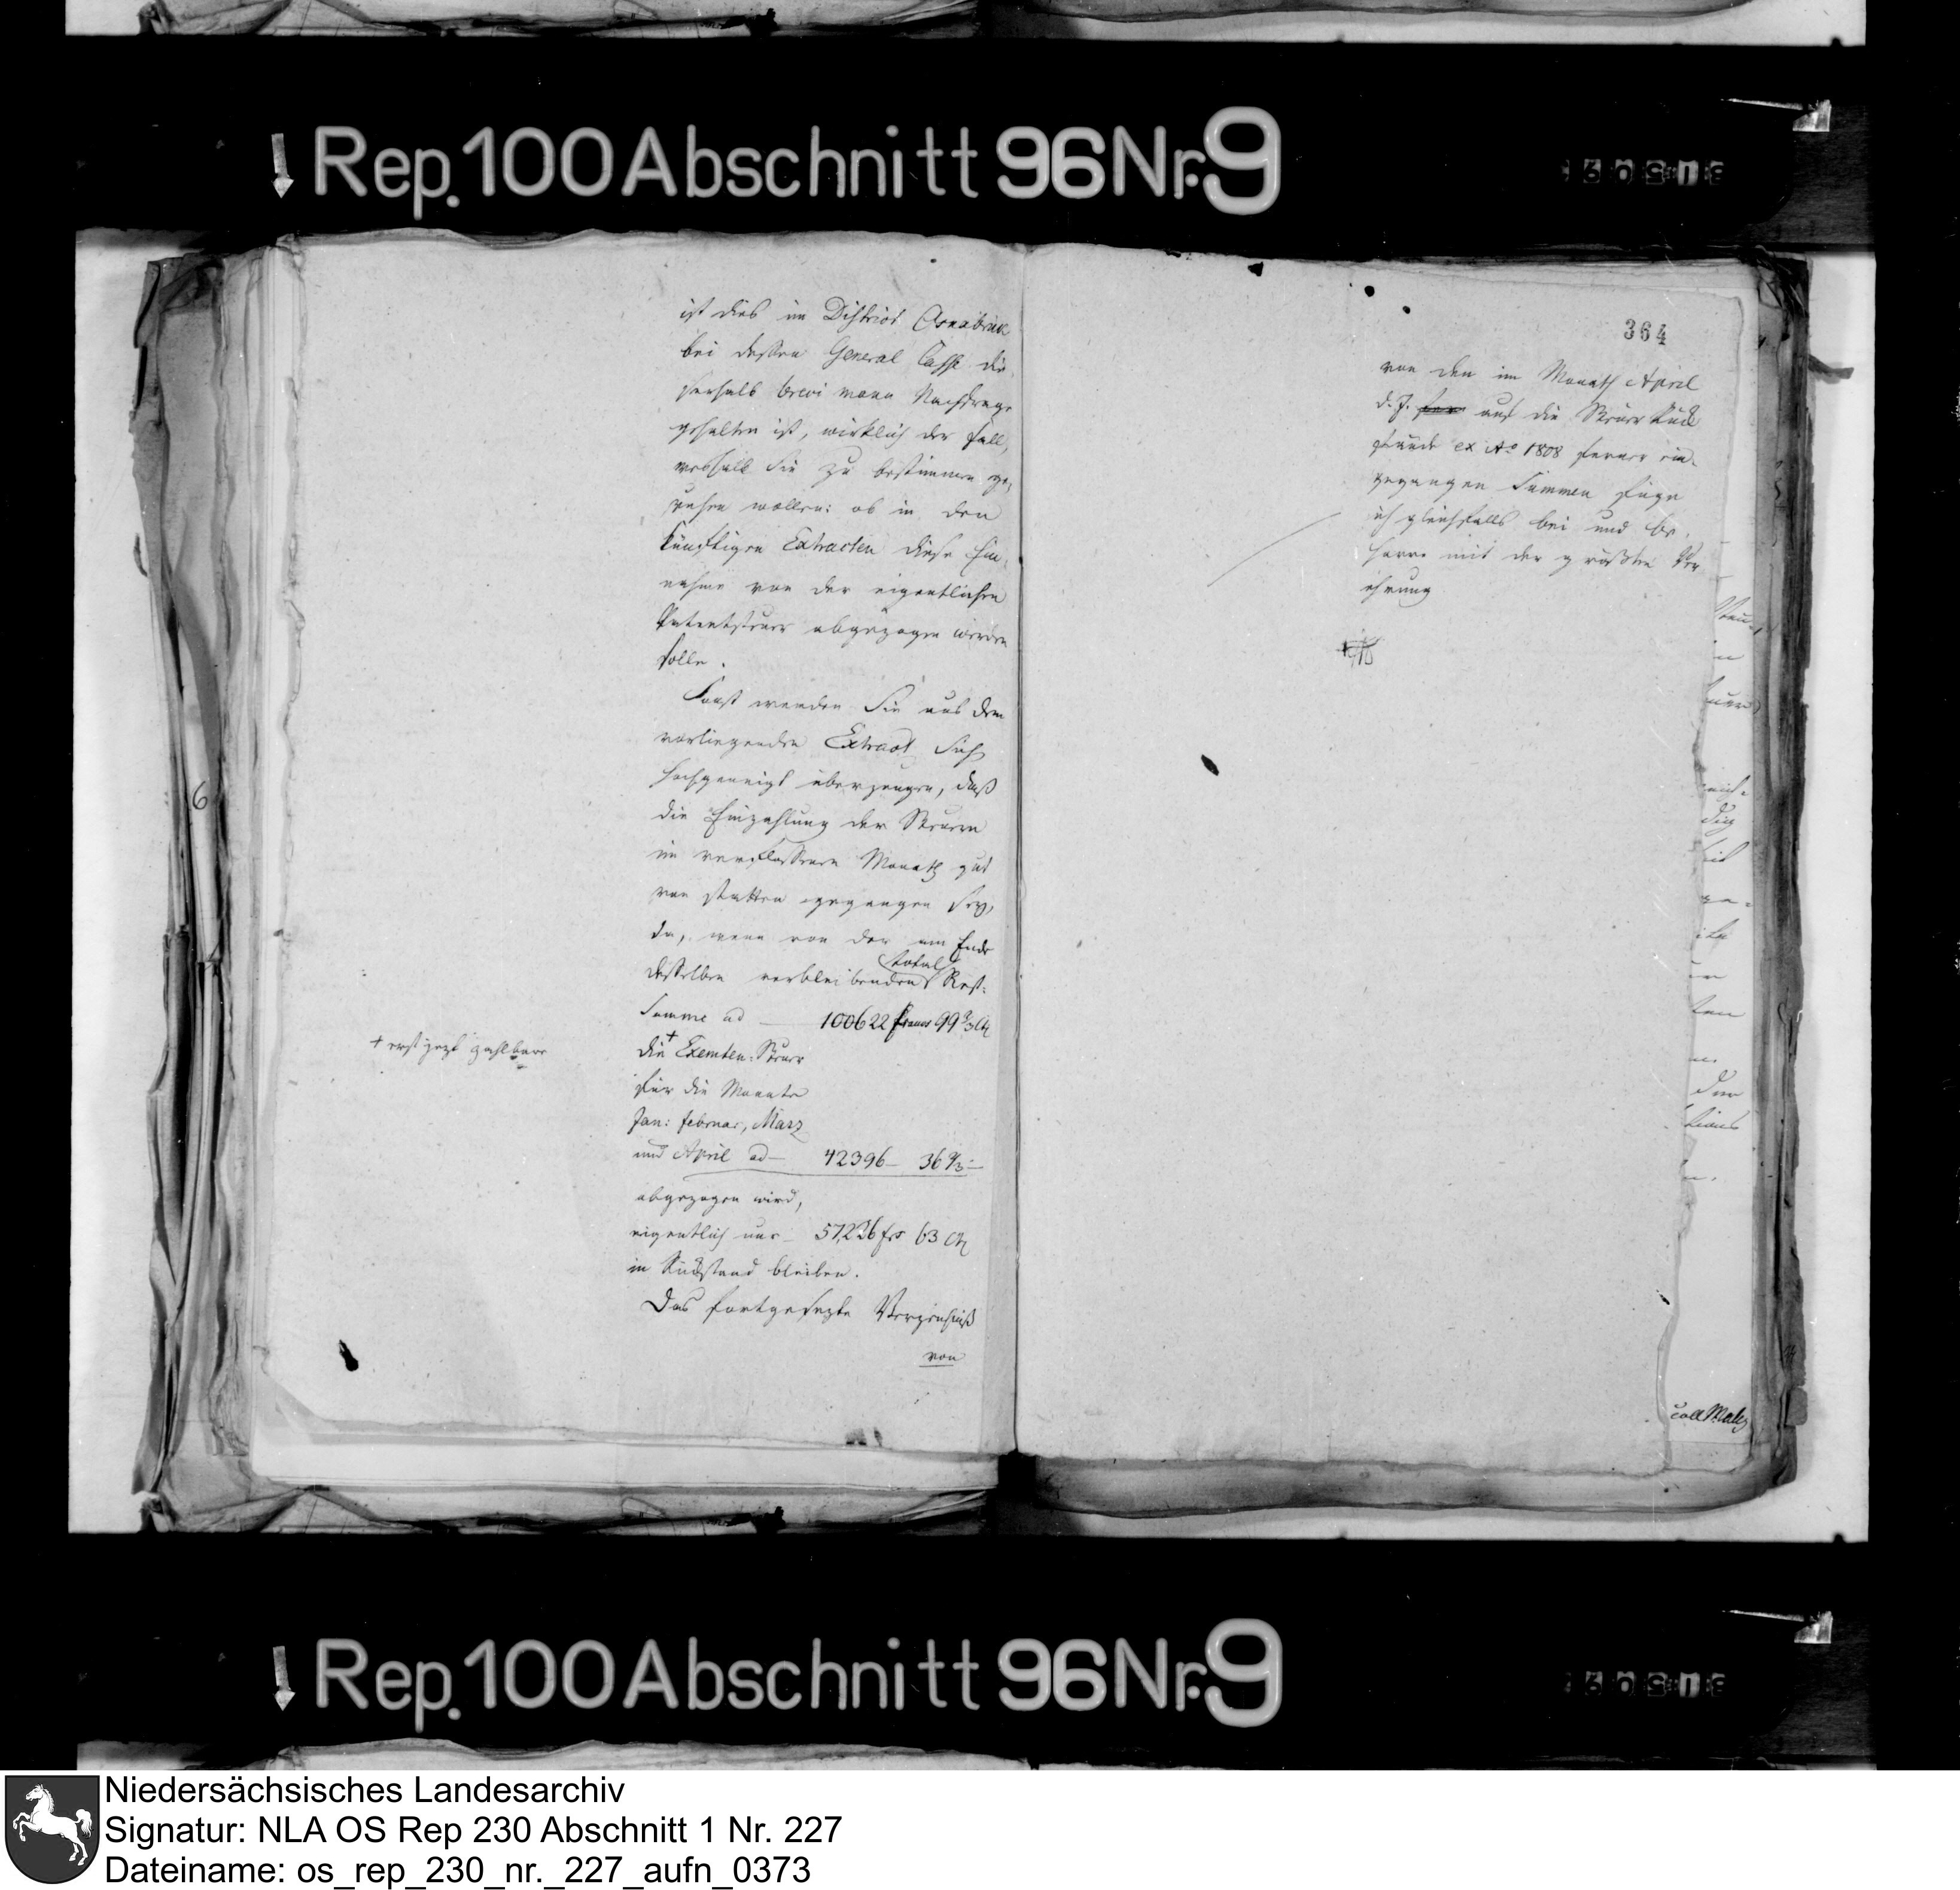 Rep. 100 Abschnitt 96 Nr. 9
ist dies im District Osnabrück
bei dessen General Casse die-
serhalb brevi manu Nachfrage
gehalten ist, wirklich der Fall,
weshalb Sie zu bestimmen ge-
ruhen wollen: ob in den
künftigen Extracten diese Ein-
nahme von der eigentlichen
Patentsteuer abgezogen werden
solle.
Sonst werden Sie aus dem
vorliegenden Extract Sich
hochgeneigt überzeugen, daß
die Einzahlung der Steuern
im verflossenen Monath gut
von statten gegangen sey,
da, wenn von der am Ende
desselben verbleibenden total Rest-
Summe ad — 100622 francs 99 2/3 Ct
die + Exemten-Steuer
für die Monate
Jan: Februar, März
und April ad — 42396 — 36 2/3 —
abgezogen wird,
eigentlich nur — 57,236 frs 63 Ct
in Rückstand bleiben.
Das fortgesezte Verzeichniß
von
+ erst jezt zahlbare
6
364
von den im Monath April
d. J. auf die Steuer Rück-
stände ex Ao 1808 ferner ein-
gegangen Summen füge
ich gleichfalls bei und be-
harre mit der größten Ver-
ehrung
coll
Rep. 100 Abschnitt 96 Nr. 9
Niedersächsisches Landesarchiv
Signatur: NLA OS Rep 230 Abschnitt 1 Nr. 227
Dateiname: os_rep_230_nr._227_aufn_0373